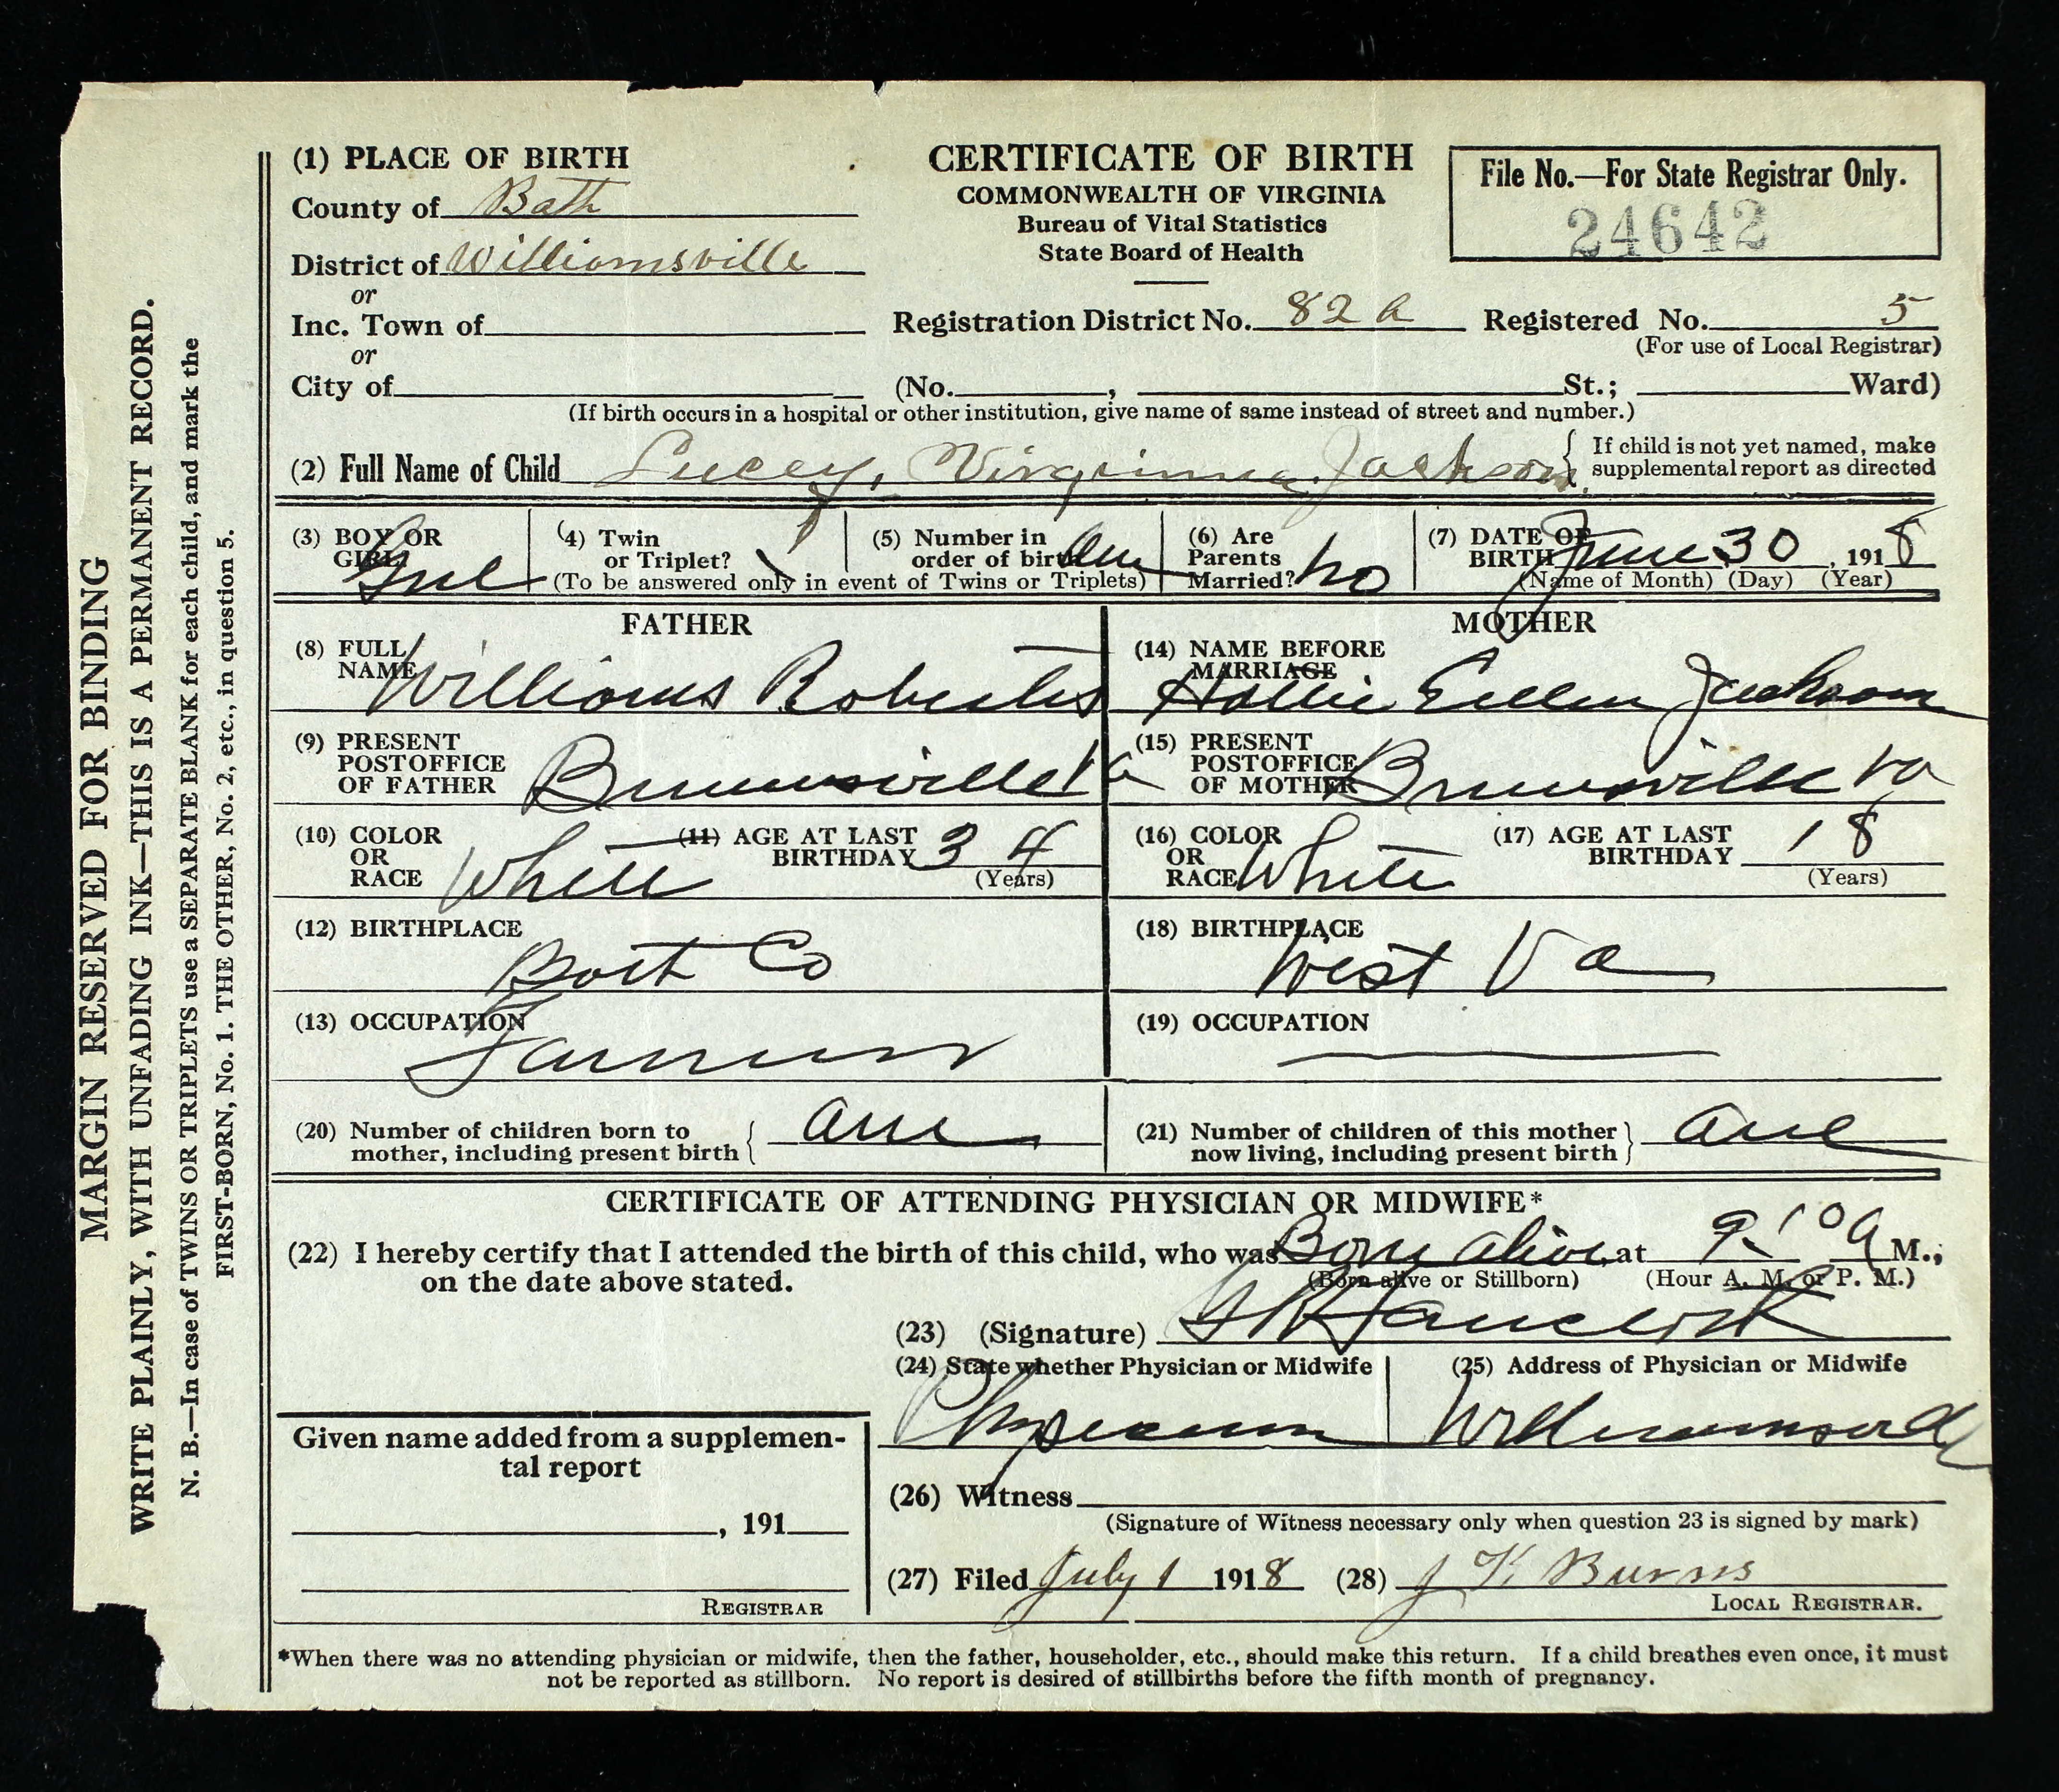 MARGIN RESERVED FOR BINDING
WRITE PLAINLY, WITH UNFADING INK—THIS IS A PERMANENT RECORD.
N. B.—In case of TWINS OR TRIPLETS use a SEPARATE BLANK for each child, and mark the
FIRST-BORN, No. 1. THE OTHER, No. 2, etc., in question 5.
(1) PLACE OF BIRTH
County of Bath
District of Williamsville
or
Inc. Town of
or
City of
CERTIFICATE OF BIRTH
COMMONWEALTH OF VIRGINIA
Bureau of Vital Statistics
State Board of Health
File No.—For State Registrar Only.
24642
Registration District No. 82 a Registered No. 5
(For use of Local Registrar)
(No. , St.; Ward)
(If birth occurs in a hospital or other institution, give name of same instead of street and number.)
(2) Full Name of Child Lucey, Virginia Jackson
If child is not yet named, make
supplemental report as directed
(3) BOY OR
GIRL Girl
(4) Twin
or Triplet?
(5) Number in
order of birth One
(To be answered only in event of Twins or Triplets)
(6) Are
Parents
Married? no
(7) DATE OF
BIRTH June 30, 1918
(Name of Month) (Day) (Year)
FATHER
(8) FULL
NAME Williams Roberts
(9) PRESENT
POSTOFFICE
OF FATHER Va
(10) COLOR
OR
RACE White
(11) AGE AT LAST
BIRTHDAY 34
(Years)
(12) BIRTHPLACE
Co
(13) OCCUPATION
Farmer
MOTHER
(14) NAME BEFORE
MARRIAGE
Ellen Jackson
(15) PRESENT
POSTOFFICE
OF MOTHER Va
(16) COLOR
OR
RACE White
(17) AGE AT LAST
BIRTHDAY 18
(Years)
(18) BIRTHPLACE
West Va
(19) OCCUPATION
(20) Number of children born to
mother, including present birth one
(21) Number of children of this mother
now living, including present birth one
CERTIFICATE OF ATTENDING PHYSICIAN OR MIDWIFE*
(22) I hereby certify that I attended the birth of this child, who was Born alive at 9.10 A M.,
on the date above stated. (Born alive or Stillborn) (Hour A. M. or P. M.)
(23) (Signature) Hancock
(24) State whether Physician or Midwife
Physician
(25) Address of Physician or Midwife
Given name added from a supplemen-
tal report
, 191
REGISTRAR
(26) Witness
(Signature of Witness necessary only when question 23 is signed by mark)
(27) Filed July 1 1918 (28) J K Burns
LOCAL REGISTRAR.
*When there was no attending physician or midwife, then the father, householder, etc., should make this return. If a child breathes even once, it must
not be reported as stillborn. No report is desired of stillbirths before the fifth month of pregnancy.